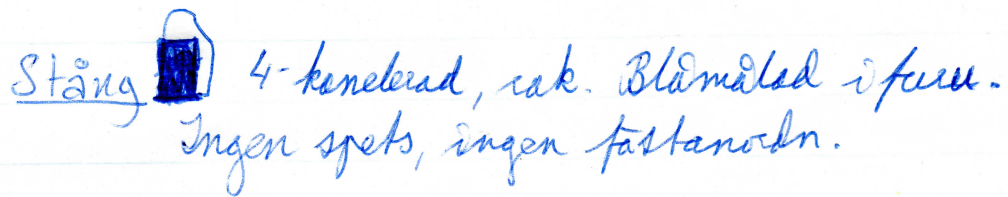 Stång 4-kanelerad, rak. Blåmålad i furu.
Ingen spets, ingen fästanordn.